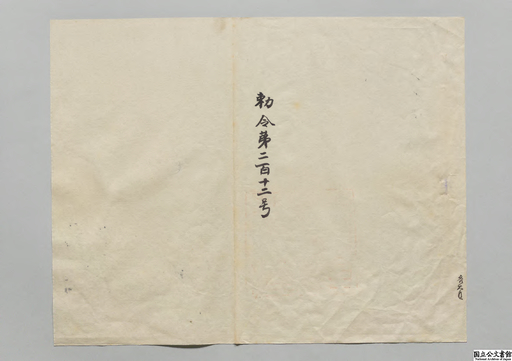 勅令第二百十二号
国立公文書館
National Archives of Japan